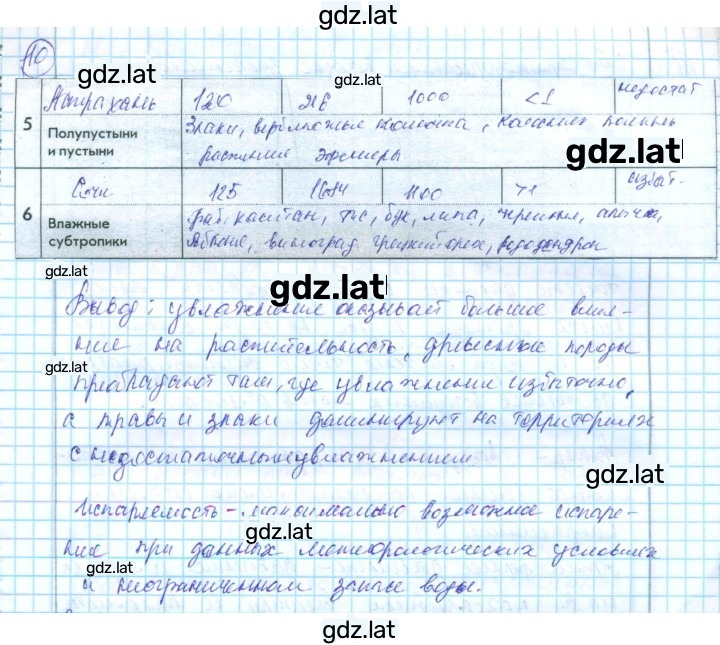 gdz.lat
10
gdz.lat
gdz.lat
5 Астрахань 120 216 1000 <1 недостат
Полупустыни и пустыни Злаки, верблюжья колючка, полынь
gdz.lat
растения эфемеры
6 Сочи 125 1684 1100 >1 избыт.
Влажные субтропики Граб, каштан, тис, бук, липа, черешня,
яблоня, виноград, грецкий орех, рододендрон
gdz.lat
gdz.lat
Вывод: увлажнение оказывает большое влия-
ние на растительность, древесные породы
gdz.lat
преобладают там, где увлажнение избыточно,
а травы и злаки доминируют на территориях
с недостаточным увлажнением.
gdz.lat
Испаряемость - максимально возможное испаре-
gdz.lat
ние при данных метеорологических условиях
gdz.lat
и неограниченном запасе воды.
gdz.lat